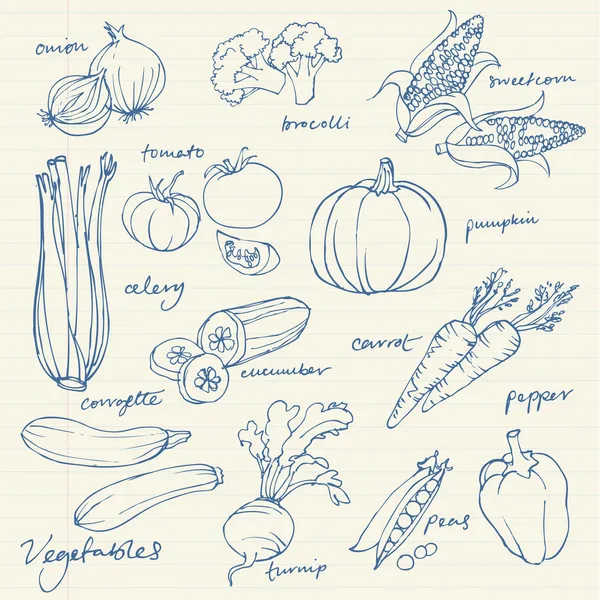 onion
brocolli
sweetcorn
tomato
pumpkin
celery
cucumber
carrot
corrogette
pepper
Vegetables
turnip
peas